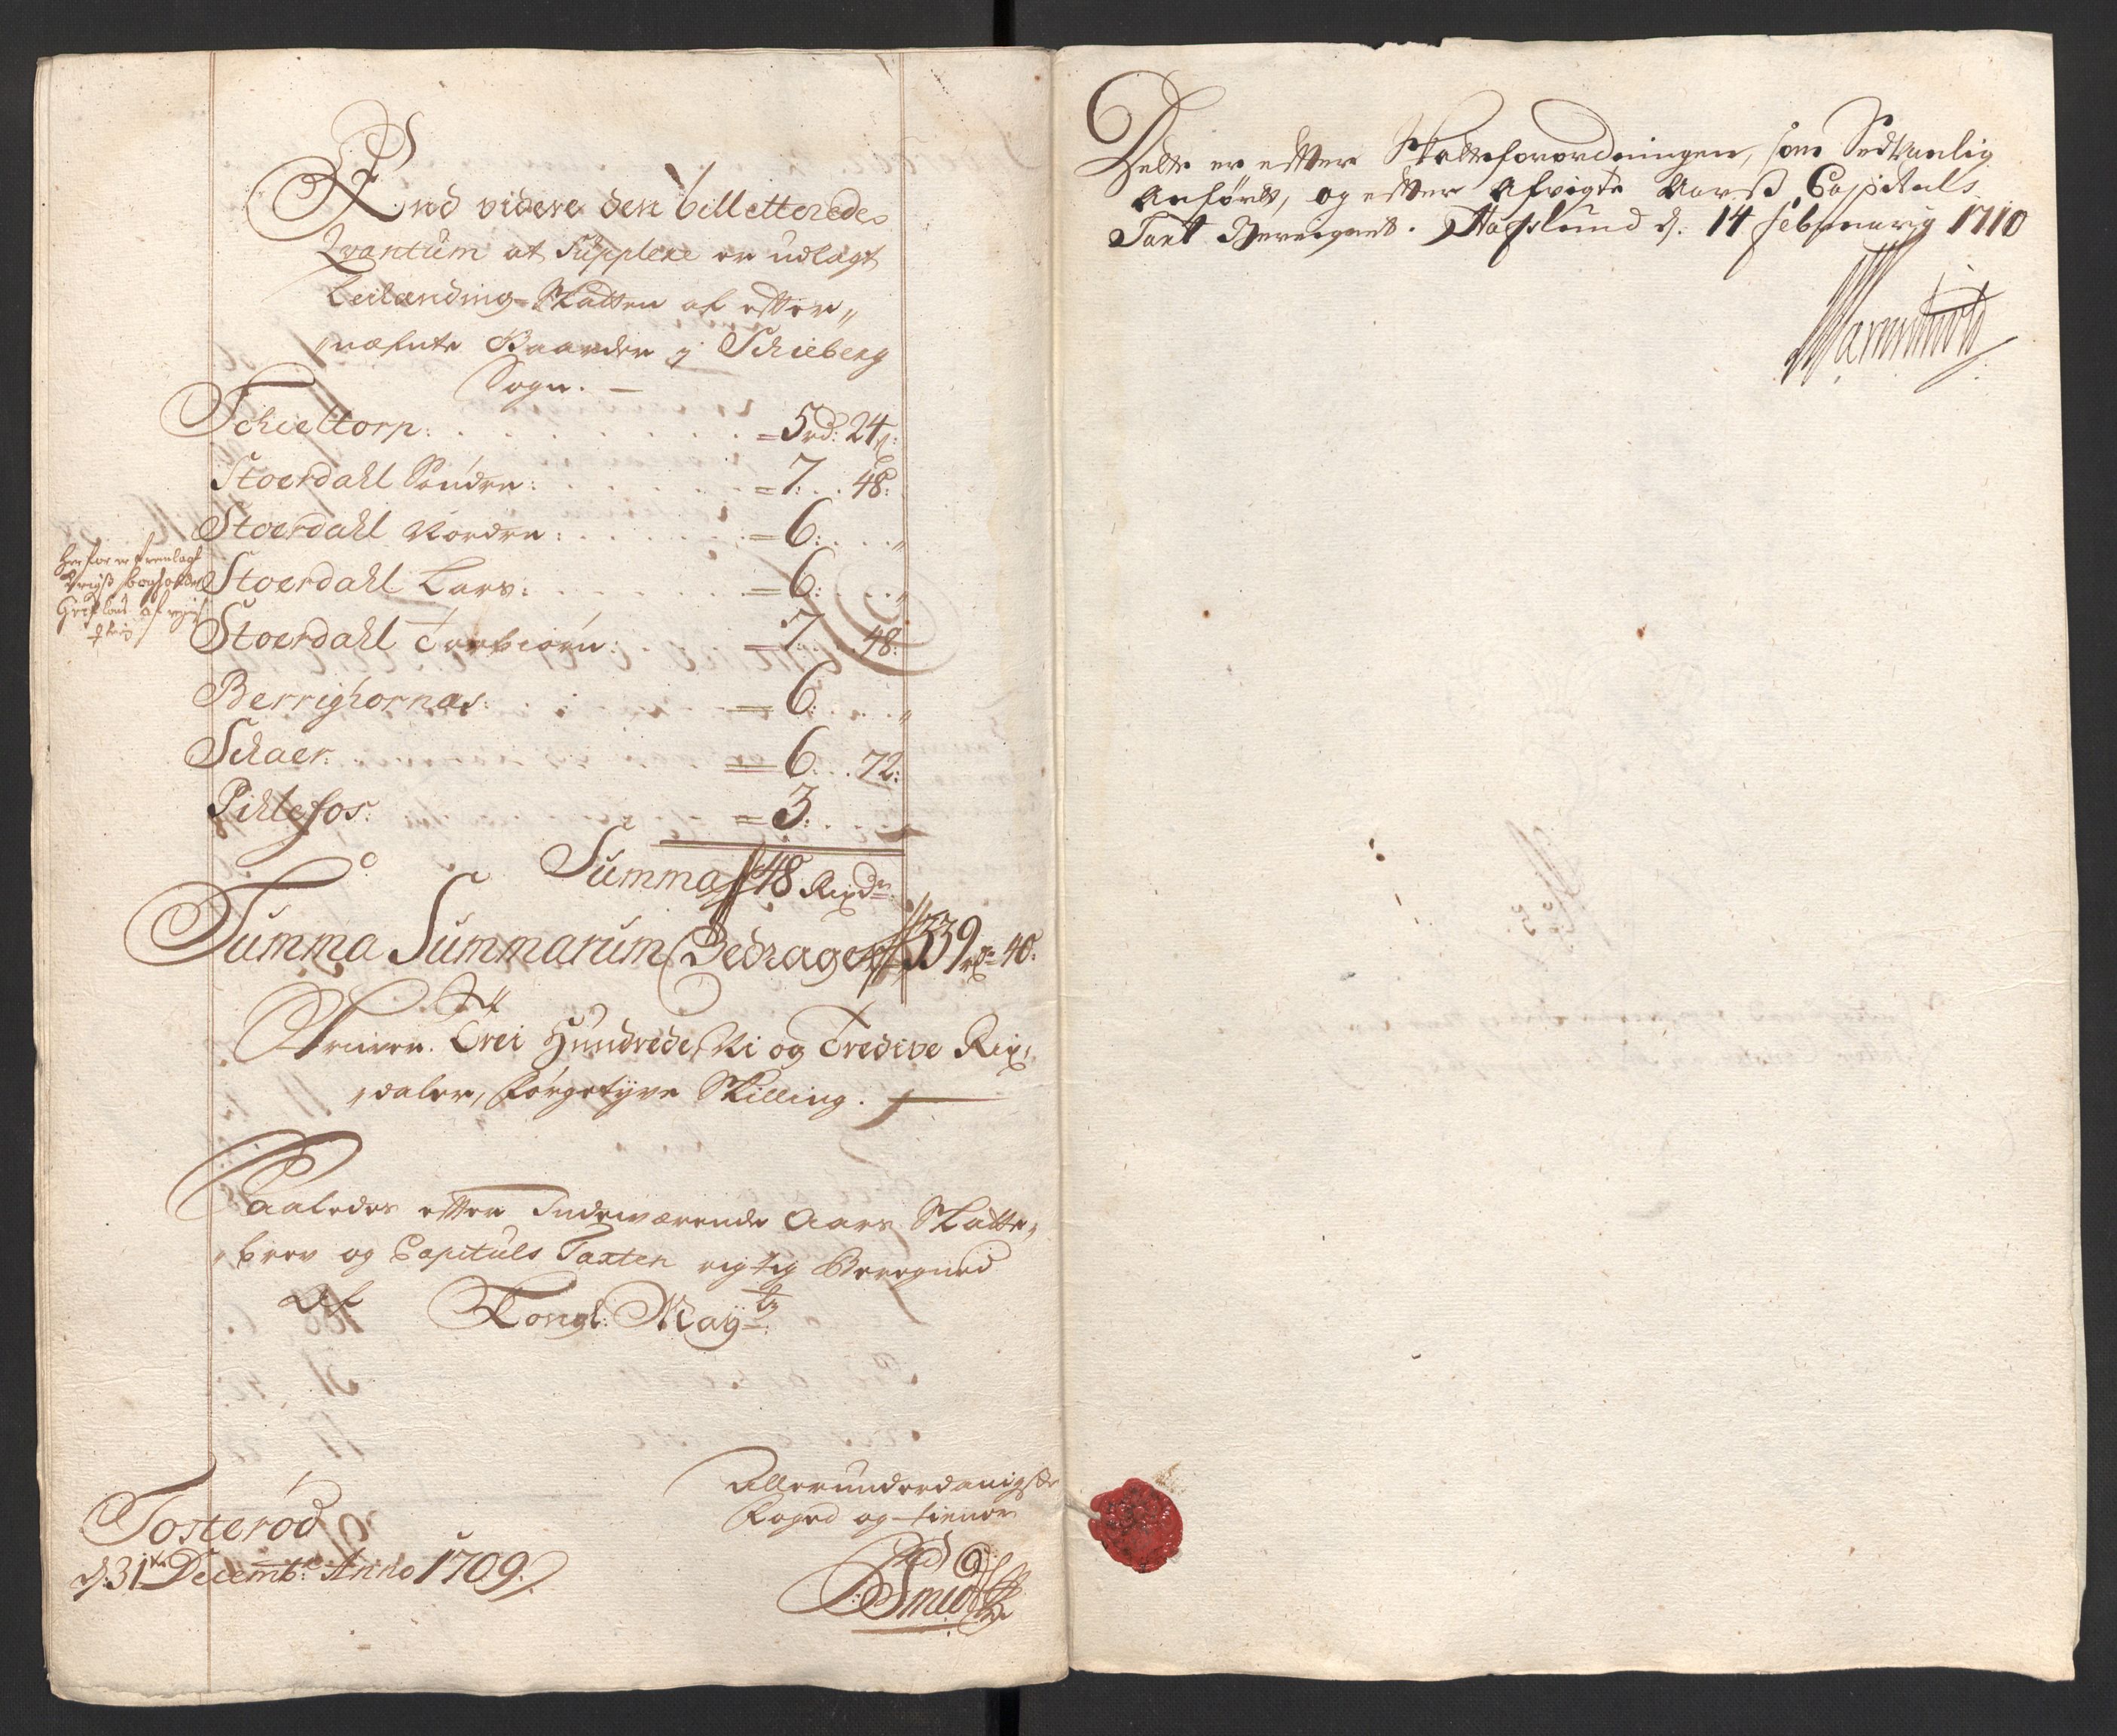 End videre den billetterede
Qvantum at Supplere er udlagt
Leilænding-Skatten af efter„
„næfnte Gaarder j Schieberg
Sogn. —
Schieltorp: = 5 rd: 24 s:
Stoerdahl Søndre: = 7: 48:
Stoerdahl Nordre: = 6: „
Stoerdahl Lars: = 6: „
Stoerdahl Torbiørn: = 7: 48:
Berrighornas: = 6: „
Schaer: = 6: 72:
Pihlefos: = 3:
Summa 48 Rixdr.
Summa Summarum Bedrager 339 rd = 40:
Skriver. Trei Hundrede, Ni og Tredive Rix„
„daler, førgetyve Skilling.
Saaledes efter Indeværende Aars Skatte„
„brev og Capituls Taxten rigtig Beregned
Af Kongl: Mayts:
Allerunderdanigste
Foged og tiener
Smid
Tosterød
d: 31te Decembr: Anno 1709.
Dette er efter Skatteforordningen, som Sedvanlig
Anført, og efter Afvigte Aarß Capituls
Taxt Beregnet. Hafslund d: 14 February 1710